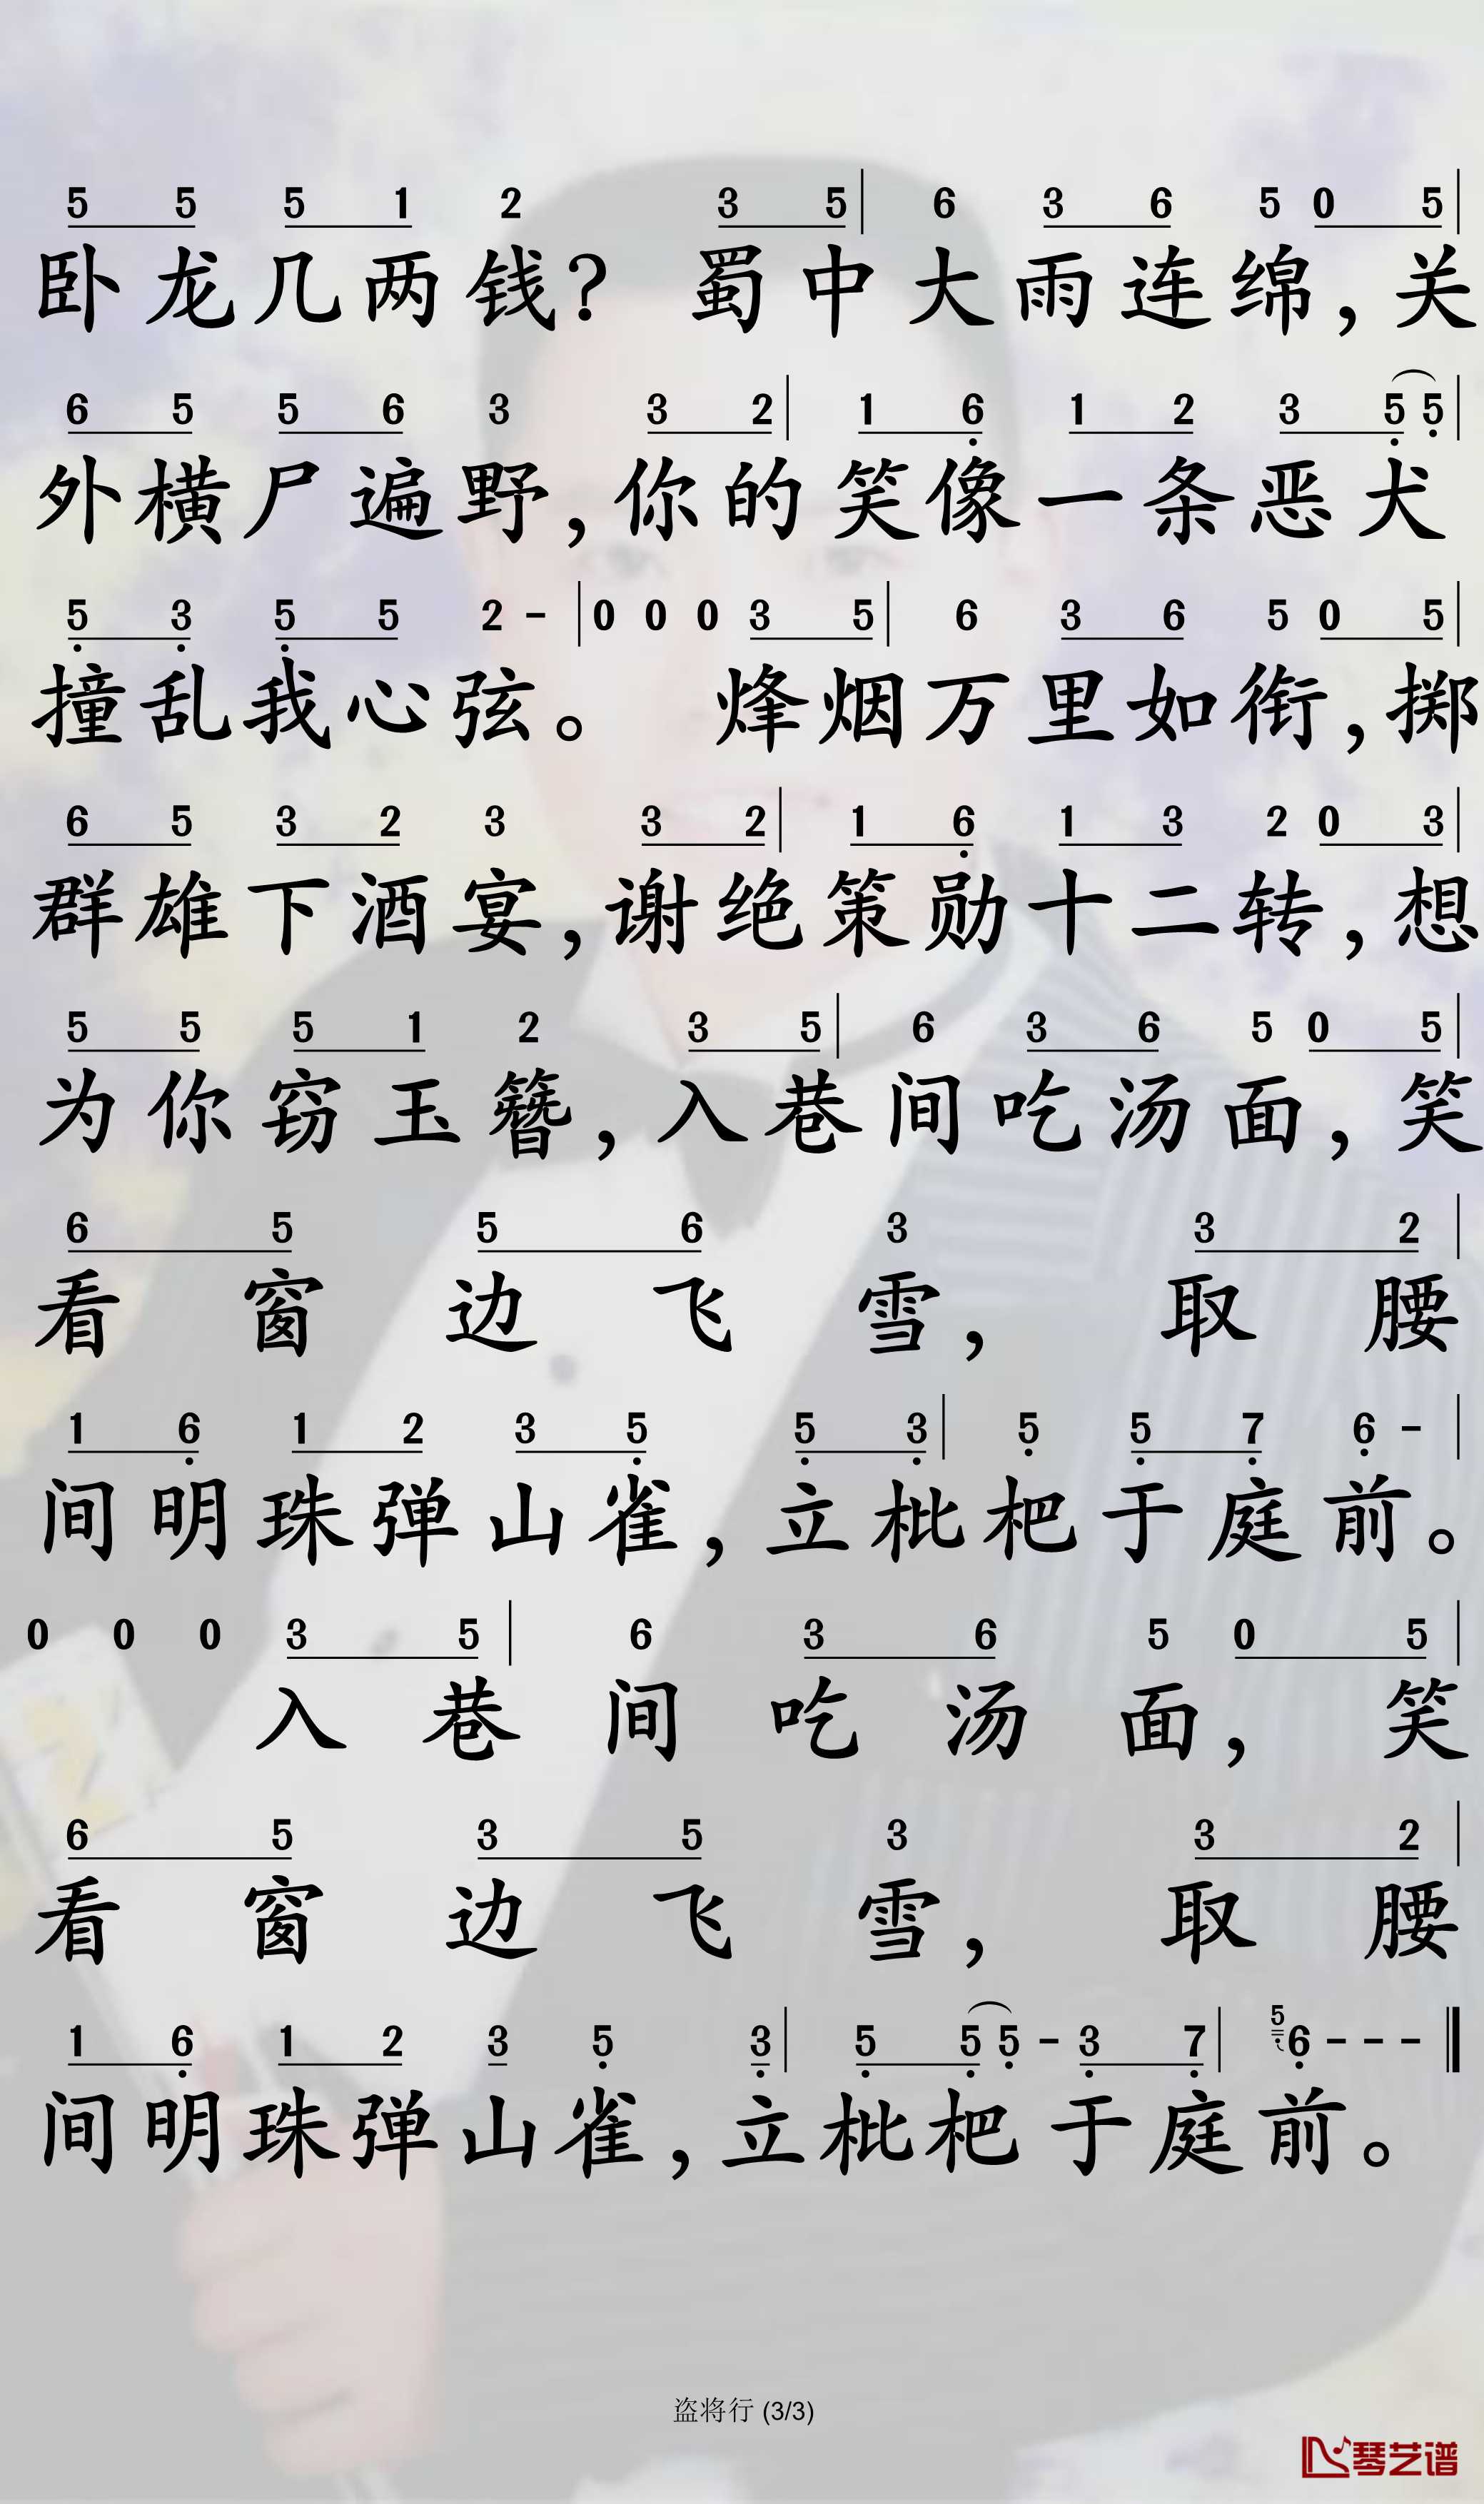 5 5 5 1 2 3 5 | 6 3 6 5 0 5 |
卧龙几两钱? 蜀中大雨连绵,关
6 5 5 6 3 3 2 | 1 6 1 2 3 5 5 |
外横尸遍野,你的笑像一条恶犬
5 3 5 5 2 - | 0 0 0 3 5 | 6 3 6 5 0 5 |
撞乱我心弦。 烽烟万里如衔,掷
6 5 3 2 3 3 2 | 1 6 1 3 2 0 3 |
群雄下酒宴,谢绝策勋十二转,想
5 5 5 1 2 3 5 | 6 3 6 5 0 5 |
为你窃玉簪,入巷间吃汤面,笑
6 5 5 6 3 3 2 |
看窗边飞雪,取腰
1 6 1 2 3 5 5 3 | 5 5 7 6 - |
间明珠弹山雀,立枇杷于庭前。
0 0 0 3 5 | 6 3 6 5 0 5 |
入巷间吃汤面,笑
6 5 3 5 3 3 2 |
看窗边飞雪,取腰
1 6 1 2 3 5 3 | 5 5 5 - 3 7 | 5 6 - - - ‖
间明珠弹山雀,立枇杷于庭前。
盗将行 (3/3)
琴艺谱